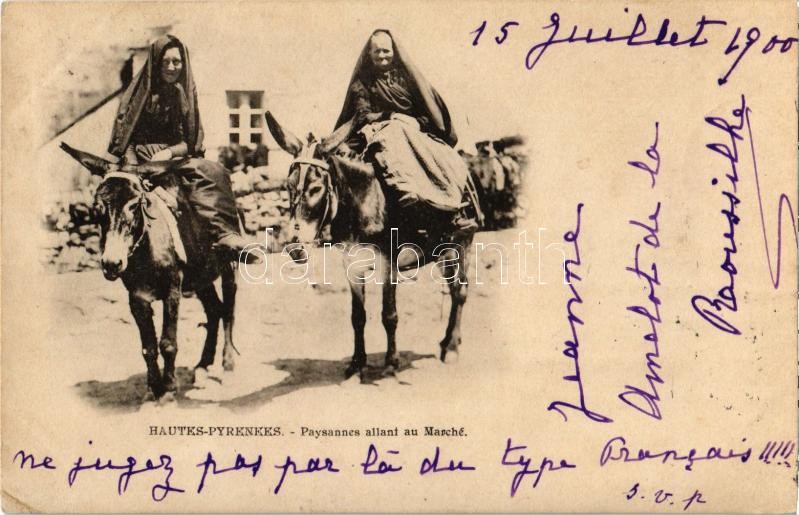 15 Juillet 1900
Jeanne
Amelot de la
Raoussilhe
darabanth.com
HAUTES-PYRENEES. - Paysannes allant au Marché.
ne jugez pas par là du type Français !!!!!
s. v. p